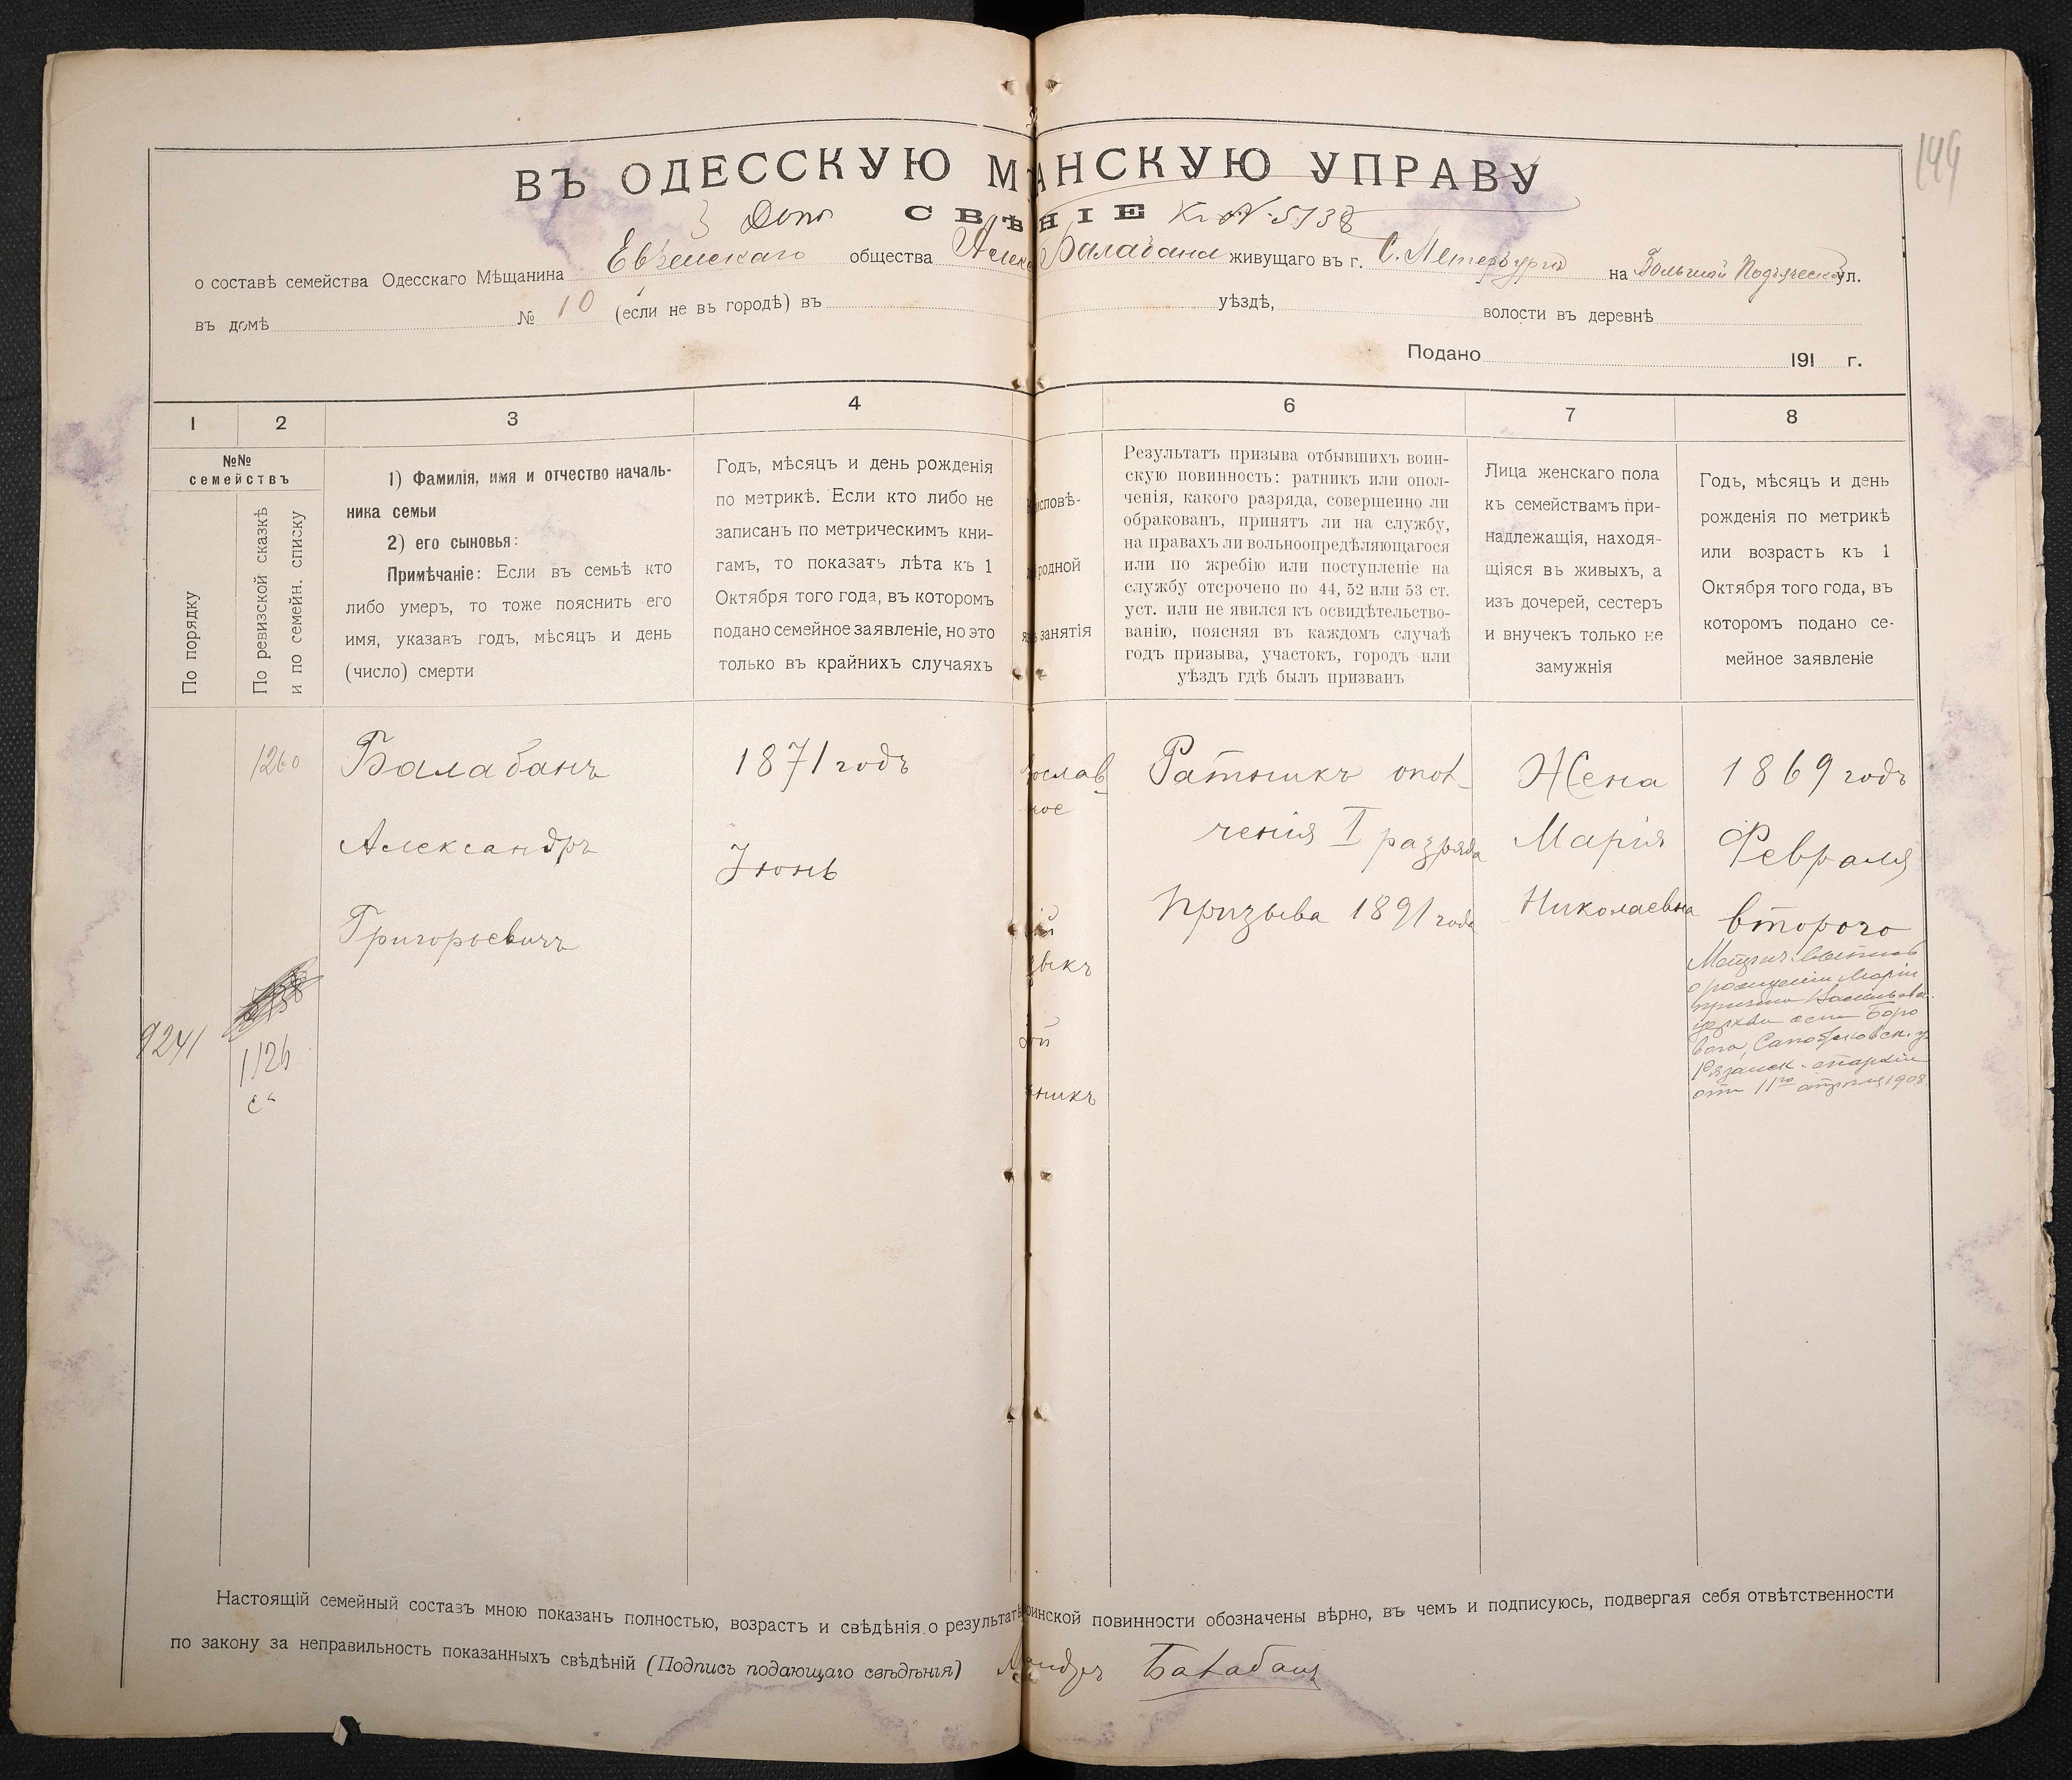 149
ВЪ ОДЕССКУЮ М АНСКУЮ УПРАВУ
СВѢ НІЕ К № 5138
о составѣ семейства Одесскаго Мѣщанина Еврейскаго общества Алекс Балабана живущаго въ г. С. Петербургѣ на Большой Подъяческой ул.
въ домѣ № 10 (если не въ городѣ) въ уѣздѣ, волости въ деревнѣ
Подано 191 г.
1 2 3 4 6 7 8
№№
семействъ
По порядку
По ревизской сказкѣ
и по семейн. списку
1) Фамилія, имя и отчество началь-
ника семьи
2) его сыновья:
Примѣчаніе: Если въ семьѣ кто
либо умеръ, то тоже пояснить его
имя, указавъ годъ, мѣсяцъ и день
(число) смерти
Годъ, мѣсяцъ и день рожденія
по метрикѣ. Если кто либо не
записанъ по метрическимъ кни-
гамъ, то показать лѣта къ 1
Октября того года, въ которомъ
подано семейное заявленіе, но это
только въ крайнихъ случаяхъ
исповѣ-
родной
занятія
Результатъ призыва отбывшихъ воин-
скую повинность: ратникъ или опол-
ченія, какого разряда, совершенно ли
обракованъ, принятъ ли на службу,
на правахъ ли вольноопредѣляющагося
или по жребію или поступленіе на
службу отсрочено по 44, 52 или 53 ст.
уст. или не явился къ освидѣтельство-
ванію, поясняя въ каждомъ случаѣ
годъ призыва, участокъ, городъ или
уѣздъ гдѣ былъ призванъ
Лица женскаго пола
къ семействамъ при-
надлежащія, находя-
щіяся въ живыхъ, а
изъ дочерей, сестеръ
и внучекъ только не
замужнія
Годъ, мѣсяцъ и день
рожденія по метрикѣ
или возрастъ къ 1
Октября того года, въ
которомъ подано се-
мейное заявленіе
1260
9241
1126
Балабанъ
Александръ
Григорьевичъ
1871 годъ
Іюнь
ослав
ное
ій
зыкъ
ой
никъ
Ратникъ опол-
ченія I разряда
Призыва 1891 года
Жена
Марія
Николаевна
1869 годъ
Февраля
второго
о рожденіи Маріи
церкви села Боро
вого, Сапожковск. у.
Рязанск. епархіи
отъ 11го апрѣля 1908
Настоящій семейный составъ мною показанъ полностью, возрастъ и свѣдѣнія о результатѣ воинской повинности обозначены вѣрно, въ чемъ и подписуюсь, подвергая себя отвѣтственности
по закону за неправильность показанныхъ свѣдѣній (Подпись подающаго свѣдѣнія) А андръ Балабанъ